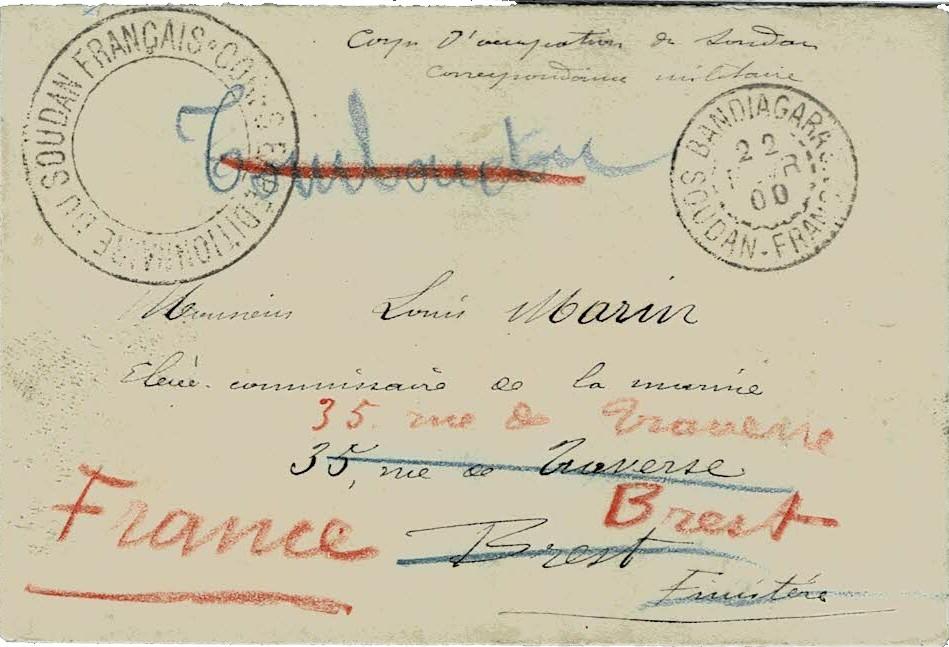 Corps D'occupation du Soudan
Correspondance militaire
CORPS EXPEDITIONNAIRE DU SOUDAN FRANÇAIS
Tombouctou
BANDIAGARA
22
00
SOUDAN-FRANÇAIS
Monsieur Louis Marin
Elève commissaire de la marine
35. rue de Traverse
35, rue de Traverse
Brest
France
Brest
Finistère